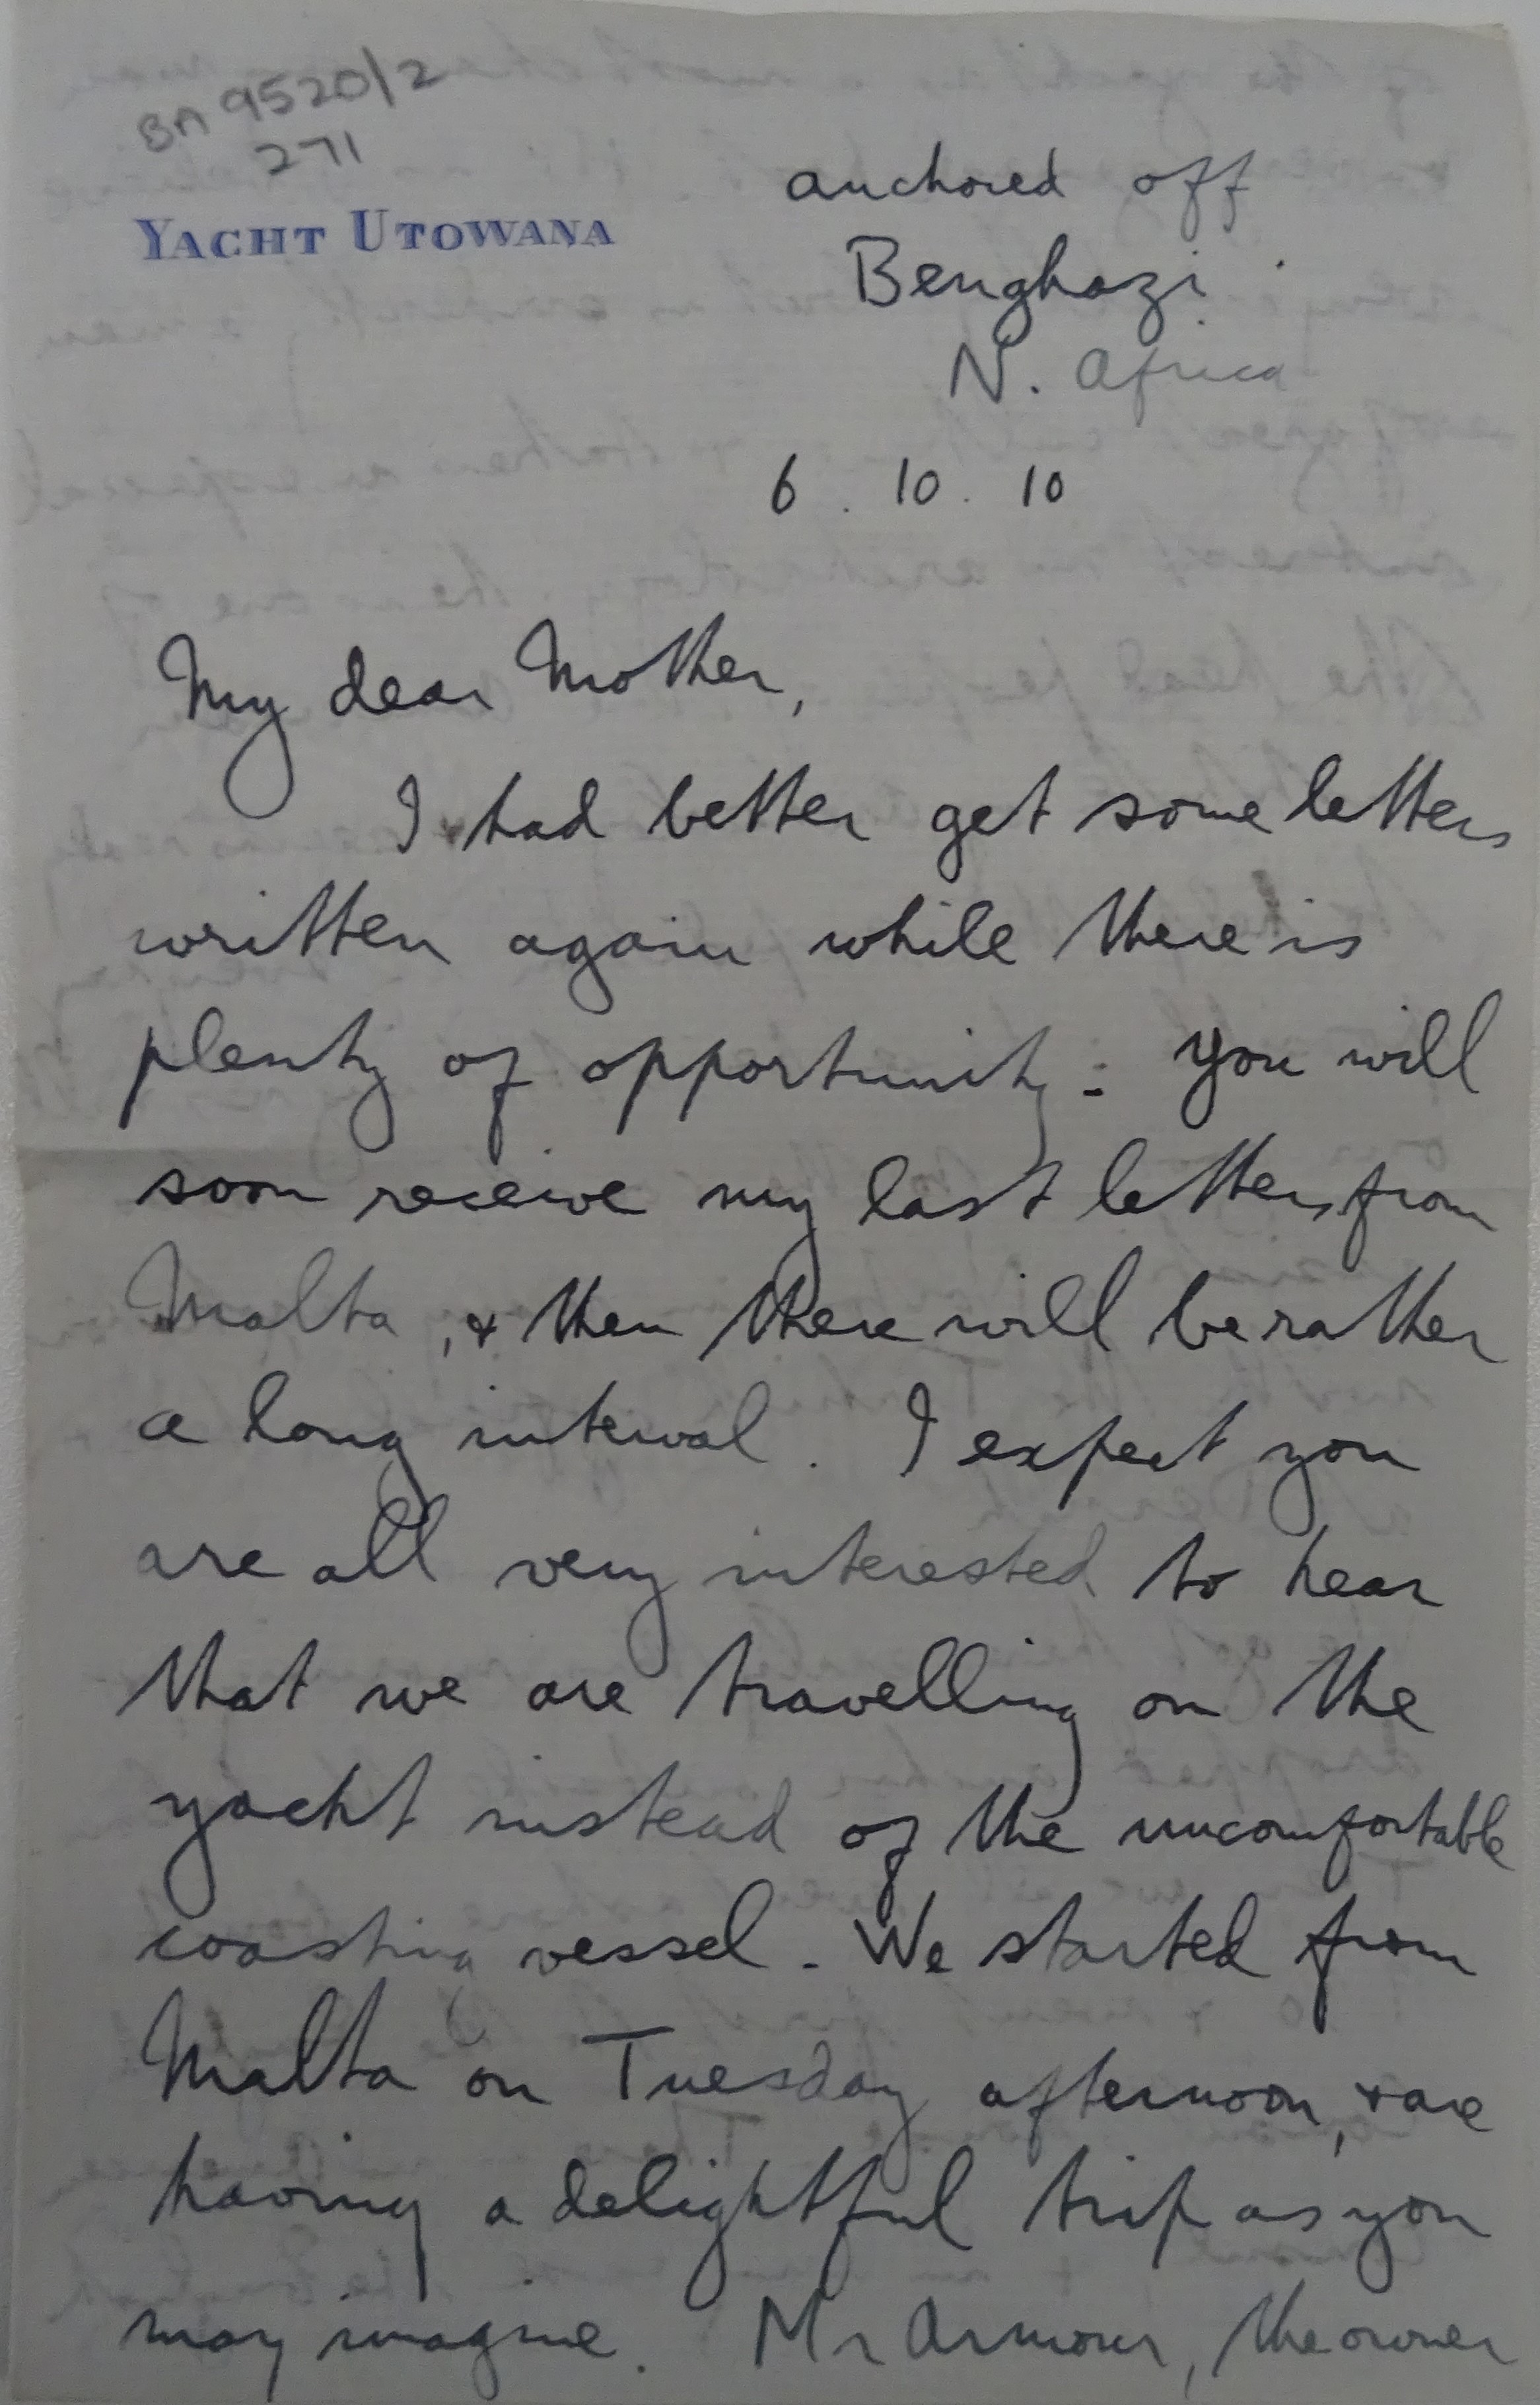 BA 9520/2
271
YACHT UTOWANA
anchored off
Benghazi
N. Africa
6 . 10 . 10
My dear Mother,
I had better get some letters
written again while there is
plenty of opportunity : you will
soon receive my last letters from
Malta , & then there will be rather
a long interval . I expect you
are all very interested to hear
that we are travelling on the
yacht instead of the uncomfortable
coasting vessel . We started from
Malta on Tuesday afternoon, & are
having a delightful trip as you
may imagine . Mr Armour, the owner